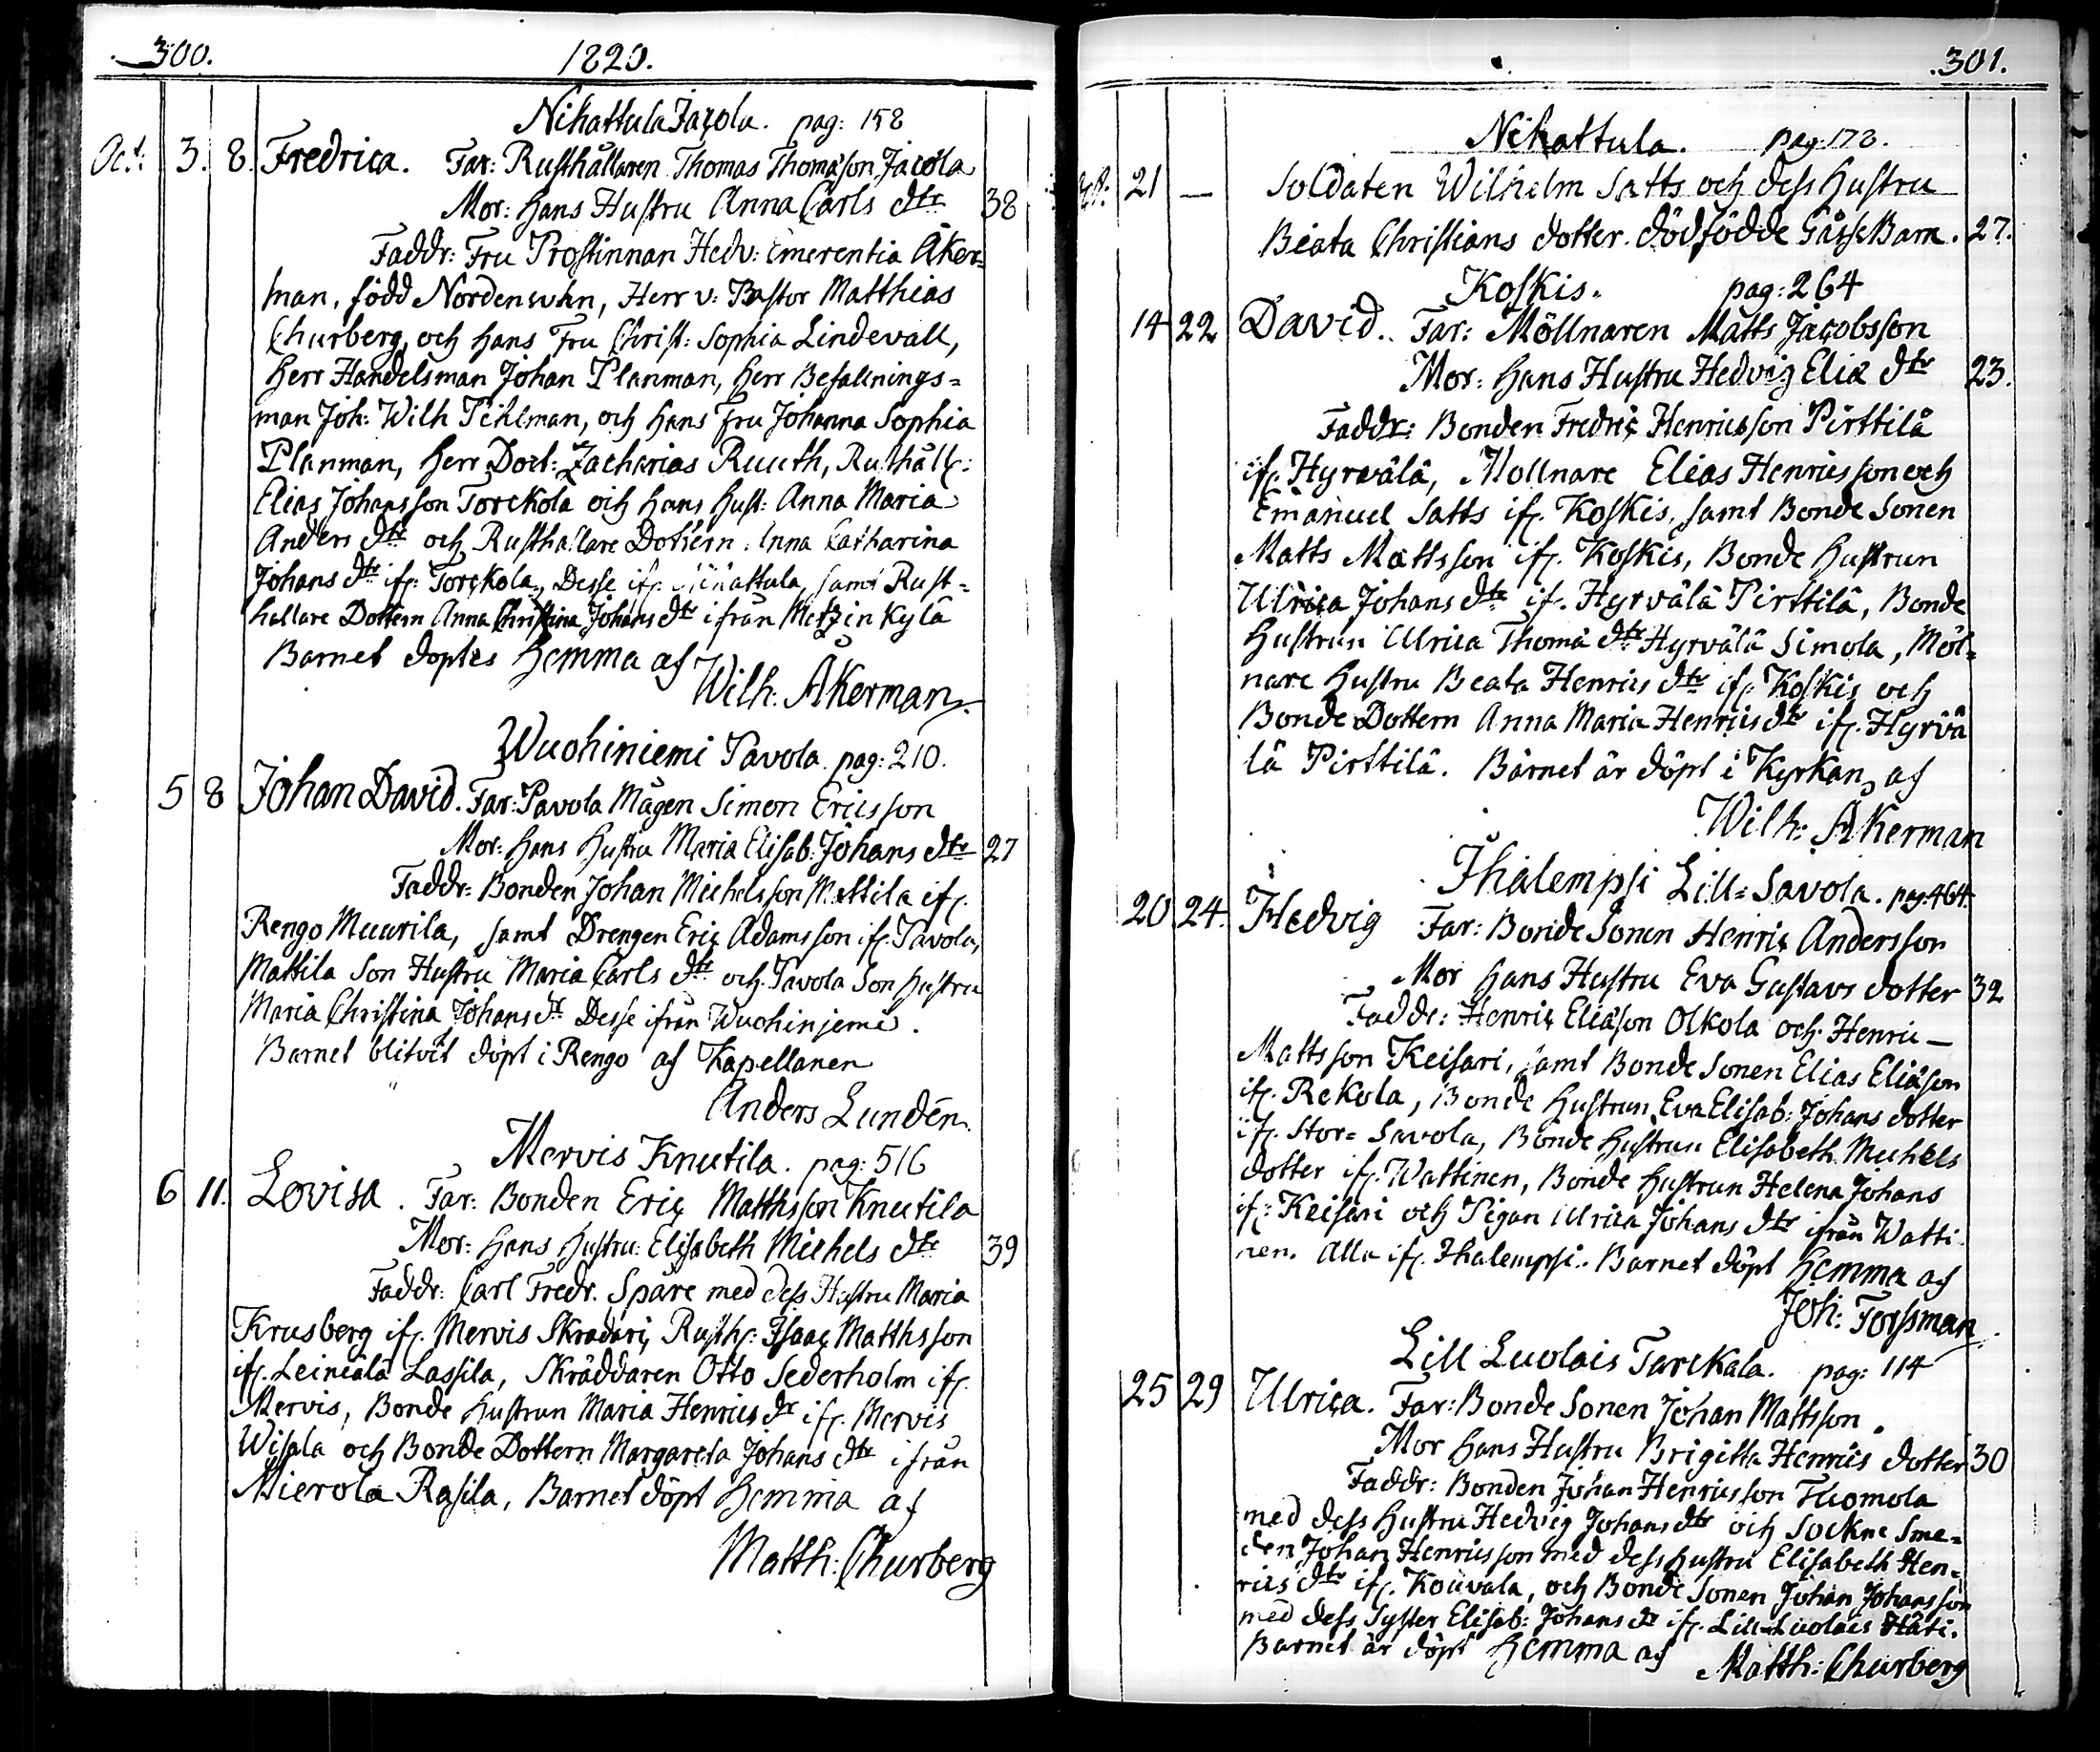 300. 1820.
Nihattula Jacola. pag: 158
Oct: 3. 8. Fredrica. Far: Rusthållaren Thomas Thomasson Jacola
Mor: hans Hustru Anna Carls dtr 38
Faddr: Fru Prostinnan Hedv: Emerentia Åker=
man, född Nordenswan, Herr v: Pastor Matthias
Churberg, och hans Fru Christ: Sophia Lindevall,
Herr Handelsman Johan Planman, Herr Befallnings=
man Joh: Wilh Pihlman, och hans Fru Johanna Sophia
Planman, Herr Doct: Zacharias Ruuth, Rusthåll:
Elias Johansson Torckola och hans Hust: Anna Maria
Anders dtr och Rusthållare Dottern Anna Catharina
Johans dtr if: Torckola, Desse if: Nihattula, samt Rust=
hållare Dottern Anna Christina Johans dtr ifrån Metzinkylä
Barnet döptes Hemma af
Wilh: Åkerman
Wuohiniemi Pavola pag: 210.
5 8 Johan David. Far: Pavola Mågen Simon Ericsson
Mor: hans Hustru Maria Elisab: Johans dtr 27
Faddr: Bonden Johan Michelsson Mattila if:
Rengo Muurila, samt Drengen Eric Adamsson if: Pavola,
Mattila Son Hustru Maria Carls dtr och Pavola Son Hustru
Maria Christina Johans dr Desse ifrån Wuohinjemi.
Barnet blifvit döpt i Rengo af Kapellanen
Anders Lundén.
Mervis Knutila. pag: 516
6 11. Lovisa. Far: Bonden Eric Matthsson Knutila
Mor: hans Hustru: Elisabeth Michels dtr 39
Faddr: Carl Fredr. Spåre med dess Hustru Maria
Krusberg if: Mervis Skradari, Rusth: Isaac Matthsson
if: Leineälä Lassila, Skräddaren Otto Sederholm if:
Mervis, Bonde Hustrun Maria Henrics dr if: Mervis
Wisala och Bonde Dottern Margareta Johans dtr ifrån
Mierola Rasila, Barnet döpt Hemma af
Matth: Churberg
301.
Nihattula. pag: 173.
21 — Soldaten Wilhelm Satts och dess Hustru
Beata Christians dotter. dödfödde Gåsse Barn. 27.
Koskis. pag: 264
14 22 David. Far: Möllnaren Matts Jacobsson
Mor: hans Hustru Hedvig Eliæ dtr 23.
Faddr: Bonden Fredric Henricsson Pirttilä
if: Hyrvälä, Mollnare Elias Henricsson och
Emanuel Satts if: Koskis, samt Bonde Sonen
Matts Mattsson if: Koskis, Bonde Hustrun
Ulrica Johans dtr if: Hyrvälä Pirttilä, Bonde
Hustrun Ulrica Thomæ dtr Hyrvälä Simola, Möl=
nare Hustru Beata Henrics dtr if: Koskis och
Bonde Dottern Anna Maria Henrics dtr if: Hyrvä
lä Pirttilä. Barnet är döpt i Kyrkan, af
Wilh: Åkerman
Ihalempsi Lill=Savola. pag: 464.
20 24. Hedvig Far: Bonde Sonen Henric Andersson
Mor hans Hustru Eva Gustavs dotter 32
Faddr: Henric Eliæson Olkola och Henric—
Mattsson Keisari, samt Bonde Sonen Elias Eliæson
if: Rekola, Bonde Hustrun Eva Elisab: Johans dotter
if: Stor=Savola, Bonde Hustrun Elisabeth Michels
dotter if: Wattinen, Bonde Hustrun Helena Johans
if: Keisari och Pigan Ulrica Johans dtr ifrån Watti
nen. Alla if: Ihalempsi. Barnet döpt Hemma af
Joh: Forssman
Lill Luolais Tarckala. pag: 114
25 29 Ulrica. Far: Bonde Sonen Johan Mattsson.
Mor Hans Hustru Brigitta Henrics dotter 30
Faddr: Bonden Johan Henricsson Thomola
med dess Hustru Hedvig Johans dtr och Sockne Sme=
den Johan Henricsson med dess Hustru Elisabeth Hen=
rics dtr if: Kouvala, och Bonde Sonen Johan Johansson
med dess Syster Elisab: Johans dr if: Lill Luolais Häti.
Barnet är döpt Hemma af Matth: Churberg